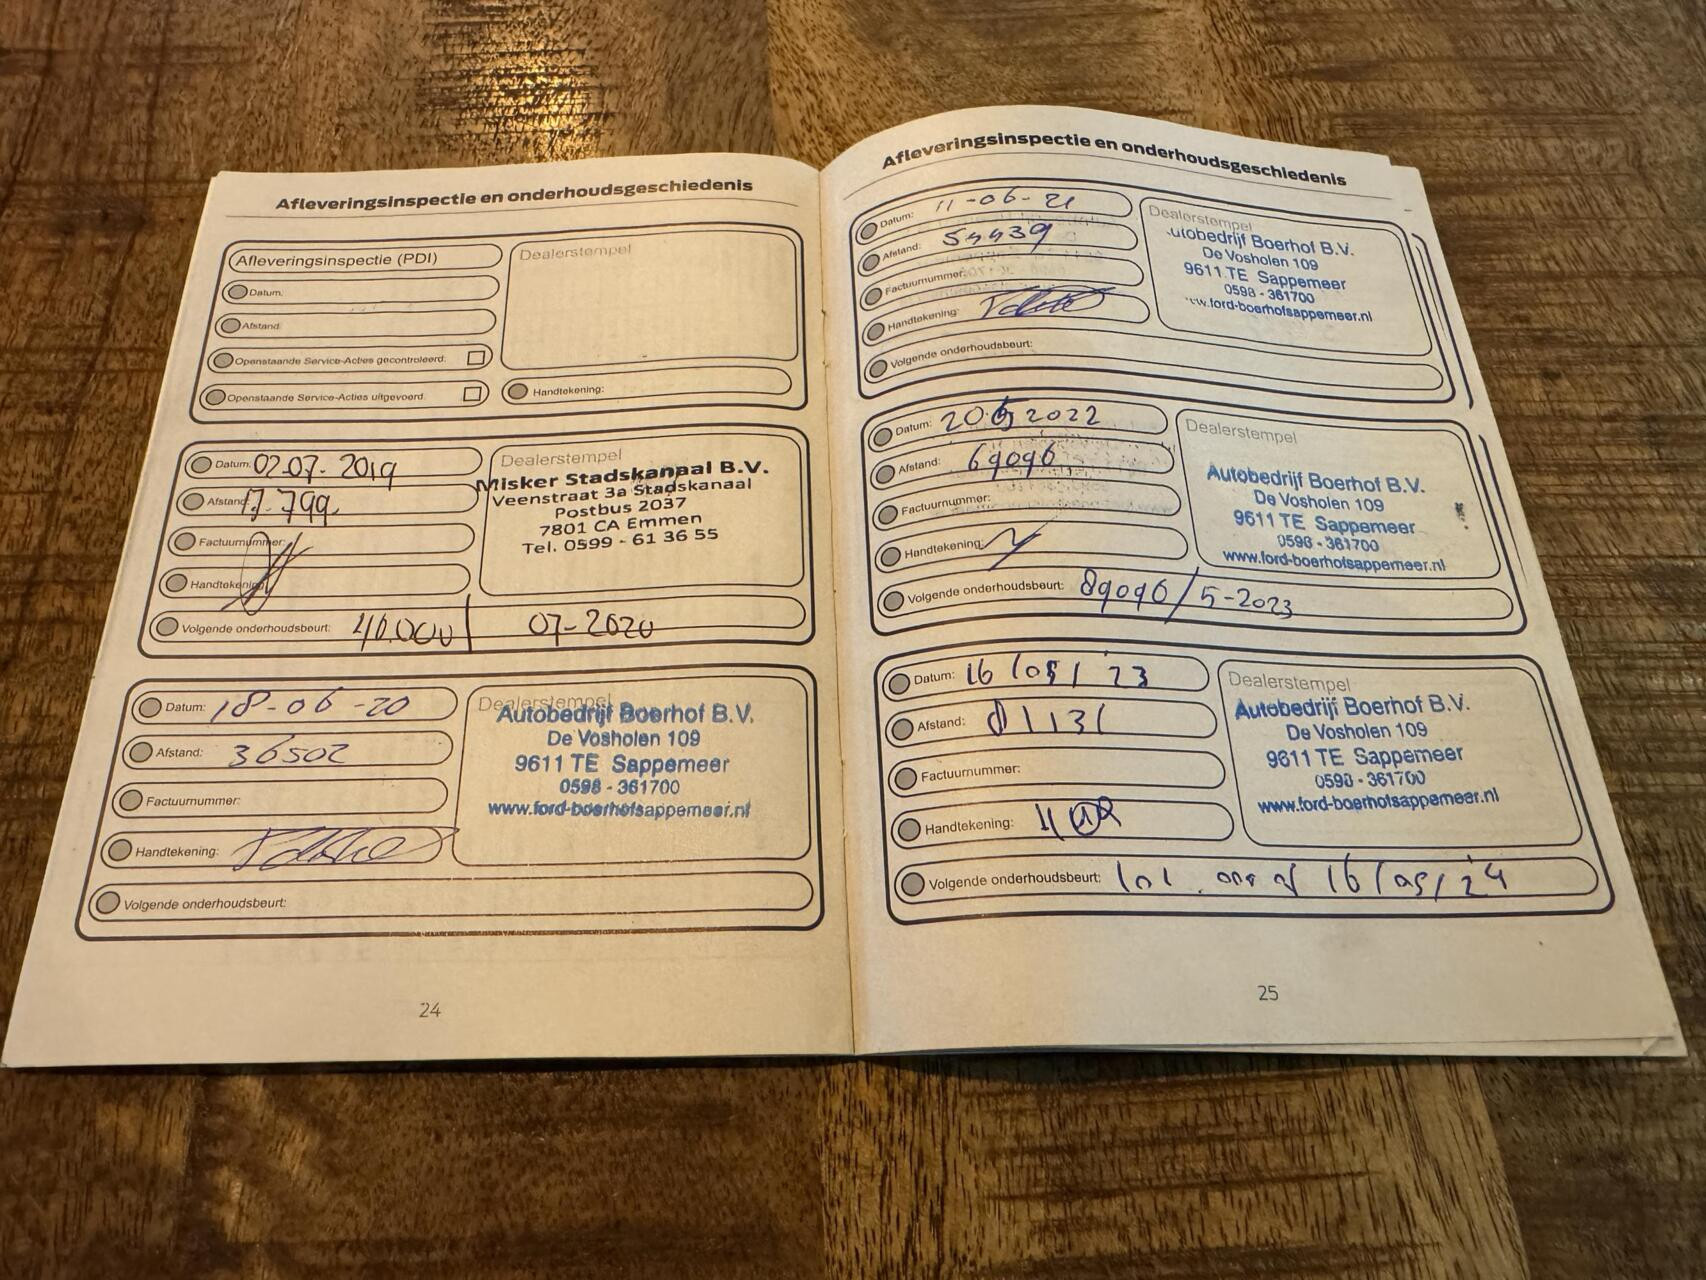 Afleveringsinspectie en onderhoudsgeschiedenis
Afleveringsinspectie (PDI)
Datum:
Afstand:
Openstaande Service-Acties gecontroleerd:
Openstaande Service-Acties uitgevoerd:
Dealerstempel
Handtekening:
Datum: 02-07-2019
Afstand: 17.799
Factuurnummer:
Handtekening:
Volgende onderhoudsbeurt: 40.000 / 07-2020
Dealerstempel
Misker Stadskanaal B.V.
Veenstraat 3a Stadskanaal
Postbus 2037
7801 CA Emmen
Tel. 0599 - 61 36 55
Datum: 18-06-20
Afstand: 36502
Factuurnummer:
Handtekening:
Volgende onderhoudsbeurt:
Dealerstempel
Autobedrijf Boerhof B.V.
De Vosholen 109
9611 TE Sappemeer
0598 - 361700
www.ford-boerhofsappemeer.nl
24
Afleveringsinspectie en onderhoudsgeschiedenis
Datum: 11-06-21
Afstand: 54439
Factuurnummer:
Handtekening:
Volgende onderhoudsbeurt:
Dealerstempel
Autobedrijf Boerhof B.V.
De Vosholen 109
9611 TE Sappemeer
0598 - 361700
www.ford-boerhofsappemeer.nl
Datum: 20 5 2022
Afstand: 69096
Factuurnummer:
Handtekening:
Volgende onderhoudsbeurt: 89096 / 5-2023
Dealerstempel
Autobedrijf Boerhof B.V.
De Vosholen 109
9611 TE Sappemeer
0598 - 361700
www.ford-boerhofsappemeer.nl
Datum: 16/05/23
Afstand: 81131
Factuurnummer:
Handtekening:
Volgende onderhoudsbeurt: 101.000 of 16/05/24
Dealerstempel
Autobedrijf Boerhof B.V.
De Vosholen 109
9611 TE Sappemeer
0598 - 361700
www.ford-boerhofsappemeer.nl
25